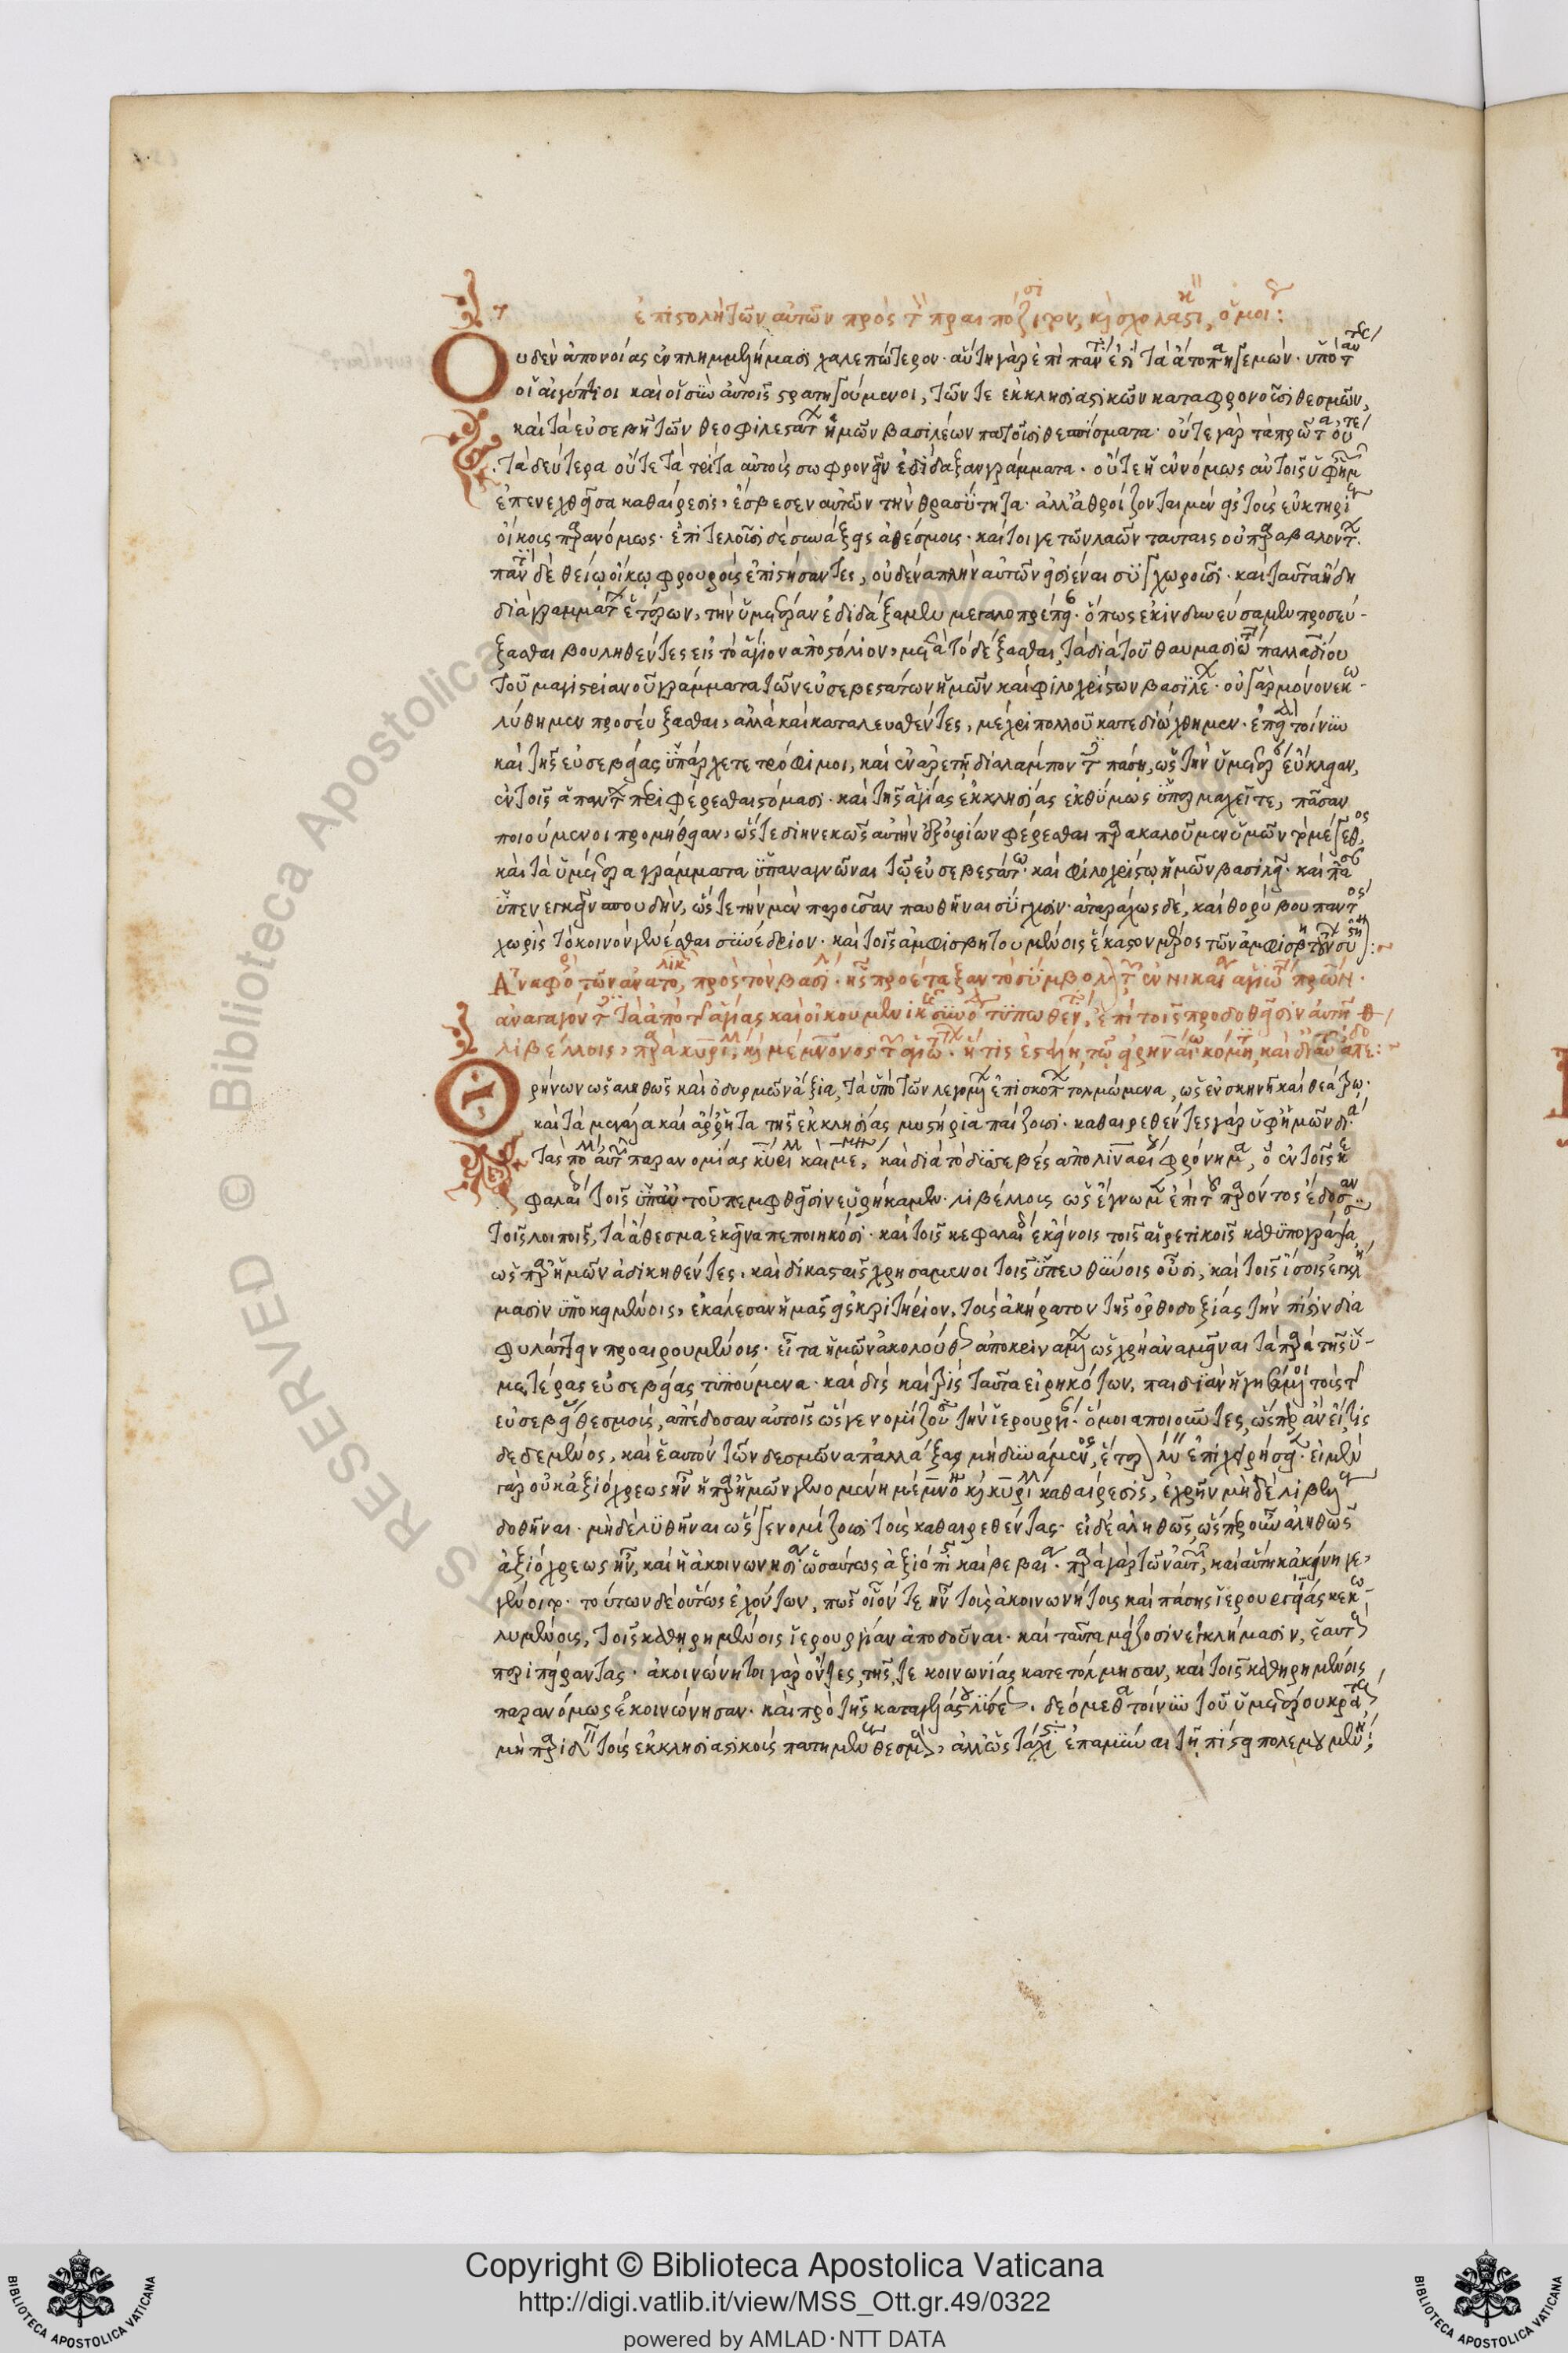 ἐπιστολὴ τῶν αὐτῶν πρὸς τ πραιπόζιτον, κὶ σχολαστι, ὅμοι:
Ουδὲν ἀπονοίας ἐν πλημμελήμασι χαλεπώτερον· αὕτη γὰρ ἐπὶ παν τὰ ἄτοπα ἡγεμών· ὑπὸ ταυτ
οἱ αἰγύπτιοι καὶ οἱ σὺν αὐτοῖς στρατηγούμενοι, τῶν τε ἐκκλησιαστικῶν καταφρονοῦσι θεσμῶν,
καὶ τὰ εὐσεβῆ τῶν θεοφιλεστάτ ἡμῶν βασιλέων πατοῦσι θεσπίσματα· οὔτε γὰρ τὰ πρῶτα οὔτε
τὰ δεύτερα οὔτε τὰ τρίτα αὐτοὺς σωφρονεῖν ἐδίδαξαν γράμματα· οὔτε ἡ ἐννόμως αὐτοῖς ὑφ ἡμ
ἐπενεχθεῖσα καθαίρεσις, ἔσβεσεν αὐτῶν τὴν θρασύτητα· ἀλλ ἀθροίζονται μὲν εἰς τοὺς εὐκτηρί
οἴκους παρανόμως· ἐπιτελοῦσι δὲ συνάξεις ἀθέσμους· καίτοιγε τῶν λαῶν ταύταις οὐ παραβαλοντ.
παντ δὲ θείῳ οἴκῳ φρουροὺς ἐπιστήσαντες, οὐδένα πλὴν αὐτῶν εἰσιέναι συγχωροῦσι· καὶ ταῦτα ἤδη
διὰ γραμμάτ ἑτέρων, τὴν ὑμετέραν ἐδιδάξαμεν μεγαλοπρέπει· ὅπως ἐκινδυνεύσαμεν προσεύ-
ξασθαι βουληθέντες εἰς τὸ ἅγιον ἀποστόλιον, μετὰ τὸ δέξασθαι, τὰ διὰ τοῦ θαυμασιω παλλαδίου
τοῦ μαγιστριανοῦ γράμματα τῶν εὐσεβεστάτων ἡμῶν καὶ φιλοχρίστων βασιλέ· οὐ γὰρ μόνον ἐκω-
λύθημεν προσεύξασθαι, ἀλλὰ καὶ καταλευσθέντες, μέχρι πολλοῦ κατεδιώχθημεν· ἐπει τοίνυν
καὶ τῆς εὐσεβείας ὑπάρχετε τρόφιμοι, καὶ ἐν ἀρετῇ διαλάμποντ πάσῃ, ὡς τὴν ὑμετερ εὔκλειαν,
ἐν τοῖς ἁπάντ περιφέρεσθαι στόμασι· καὶ τῆς ἁγίας ἐκκλησίας ἐκθύμως ὑπερμαχεῖτε, πᾶσαν
ποιούμενοι προμήθειαν, ὥστε διηνεκῶς αὐτὴν ἐξ οὐρίων φέρεσθαι παρακαλοῦμεν ὑμῶν τὸ μέγεθος
καὶ τὰ ὑμέτερα γράμματα ὑπαναγνῶναι τῷ εὐσεβεστάτω· καὶ φιλοχρίστῳ ἡμῶν βασιλεῖ· καὶ πᾶσ
ὑπενεγκεῖν σπουδὴν, ὥστε τὴν μὲν παροῦσαν παυθῆναι σύγχυσιν· ἀταράχως δὲ, καὶ θορύβου παντος
χωρὶς τὸ κοινὸν γενέσθαι συνέδριον· καὶ τοῖς ἀμφισβητουμένοις ἕκαστον μέρος τῶν ἀμφισβητουν συστη:
Ἀναφο τῶν ἀνατολικ, πρὸς τὸν βασιλ· ἧς προέταξαν τὸ σύμβολ τ ἐν νικαία ἁγιω πρων·
ἀναταγοντ τὰ ἀπὸ τ ἁγίας καὶ οἰκουμενικ συνο τυπωθεν, ἐπὶ τοῖς προδοθεῖσιν αὐτῇ
λιβέλλοις, παρὰ κυριλ, κὶ μέμνονος τ ἁγιω· ἥτις ἐστάλη, τῷ εἰρηναίω κόμητ, καὶ δι αυ ἀπεδο:
Θρήνων ὡς ἀληθῶς καὶ ὀδυρμῶν ἄξια, τὰ ὑπὸ τῶν λεγομεν ἐπισκοπ τολμώμενα, ὡς ἐν σκηνῇ καὶ θεάτρω·
καὶ τὰ μεγάλα καὶ ἄρρητα τῆς ἐκκλησίας μυστήρια παίζουσι· καθαιρεθέντες γὰρ ὑφ ἡμῶν δια
τὰς πολλ αὐτ παρανομίας κύριλλ καὶ μέμν, καὶ διὰ τὸ δυσσεβές ἀπολιναρίου φρόνημα, ὃ ἐν τοῖς κε
φαλαι τοῖς ὑπ αυτοῦ πεμφθεῖσιν εὑρήκαμεν· λιβέλλους ὡς ἔγνωμ ἐπὶ τοῦ παρόντος ἔδοσαν
τοῖς λοιποῖς, τὰ ἄθεσμα ἐκεῖνα πεποιηκόσι· καὶ τοῖς κεφαλαι ἐκείνοις τοῖς αἱρετικοῖς καθυπογράψα
ὡς παρ ἡμῶν ἀδικηθέντες, καὶ δικασταῖς χρησάμενοι τοῖς ὑπευθύνοις οὖσι, καὶ τοῖς ἴσοις ἐγκλή
μασιν ὑποκειμένοις, ἐκάλεσαν ἡμᾶς εἰς κριτήριον, τοὺς ἀκήρατον τῆς ὀρθοδοξίας τὴν πίστιν δια
φυλάττειν προαιρουμένους· εἶτα ἡμῶν ἀκολούθως ἀποκριναμεν ὡς χρὴ ἀναμεῖναι τὰ παρὰ τῆς ὑ-
μετέρας εὐσεβείας τυπούμενα· καὶ δὶς καὶ τρὶς ταῦτα εἰρηκότων, παιδιὰν ἡγησάμενοι τοὺς τ
εὐσεβεί θεσμοὺς, ἀπέδοσαν αὐτοῖς ὥς γε νομίζου τὴν ἱερουργι· ὅμοια ποιοῦντες, ὥσπερ ἂν εἴ τις
δεδεμένος, καὶ ἑαυτὸν τῶν δεσμῶν ἀπαλλάξαι μὴ δυνάμενος, ἕτερ λυ ἐπιχειρήσει· εἰ μὲν
γὰρ οὐκ ἀξιόχρεως ἦν ἡ παρ ἡμῶν γενομένη μέμνο κὶ κυρίλλ καθαίρεσις, ἐχρῆν μὴ δὲ λιβελ
δοθῆναι· μὴ δὲ λυθῆναι ὥς γε νομίζουσι τοὺς καθαιρεθέντας· εἰ δὲ ἀληθῶς ὥσπερ οὖν ἀληθῶς
ἀξιόχρεως ἦν, καὶ ἡ ἀκοινωνησία ὡσαύτως ἀξιόπι καὶ βεβαία· παρὰ γὰρ τῶν αυτ, καὶ αὕτη κἀκείνη γε-
γένηται· τούτων δὲ οὕτως ἐχόντων, πῶς οἷόν τε ἦν τοὺς ἀκοινωνήτους καὶ πάσης ἱερουργίας κεκω-
λυμένους, τοῖς καθῃρημένοις ἱερουργίαν ἀποδοῦναι· καὶ ταῦτα μείζοσιν ἐγκλήμασιν, ἑαυτοὺς
περιπείραντας· ἀκοινώνητοι γὰρ ὄντες, τῆς τε κοινωνίας κατετόλμησαν, καὶ τοῖς καθῃρημένοις
παρανόμως ἐκοινώνησαν· καὶ πρὸ τῆς καταψευστου λύσε. δεόμεθα τοίνυν τοῦ ὑμετέρου κράτ
μὴ παριδ τοῖς ἐκκλησιαστικοὺς πατημεν θεσμ, ἀλλ ὡς τάχιστ ἐπαμῦναι τῇ πίστει πολεμουμεν:
Copyright © Biblioteca Apostolica Vaticana
http://digi.vatlib.it/view/MSS_Ott.gr.49/0322
powered by AMLAD·NTT DATA